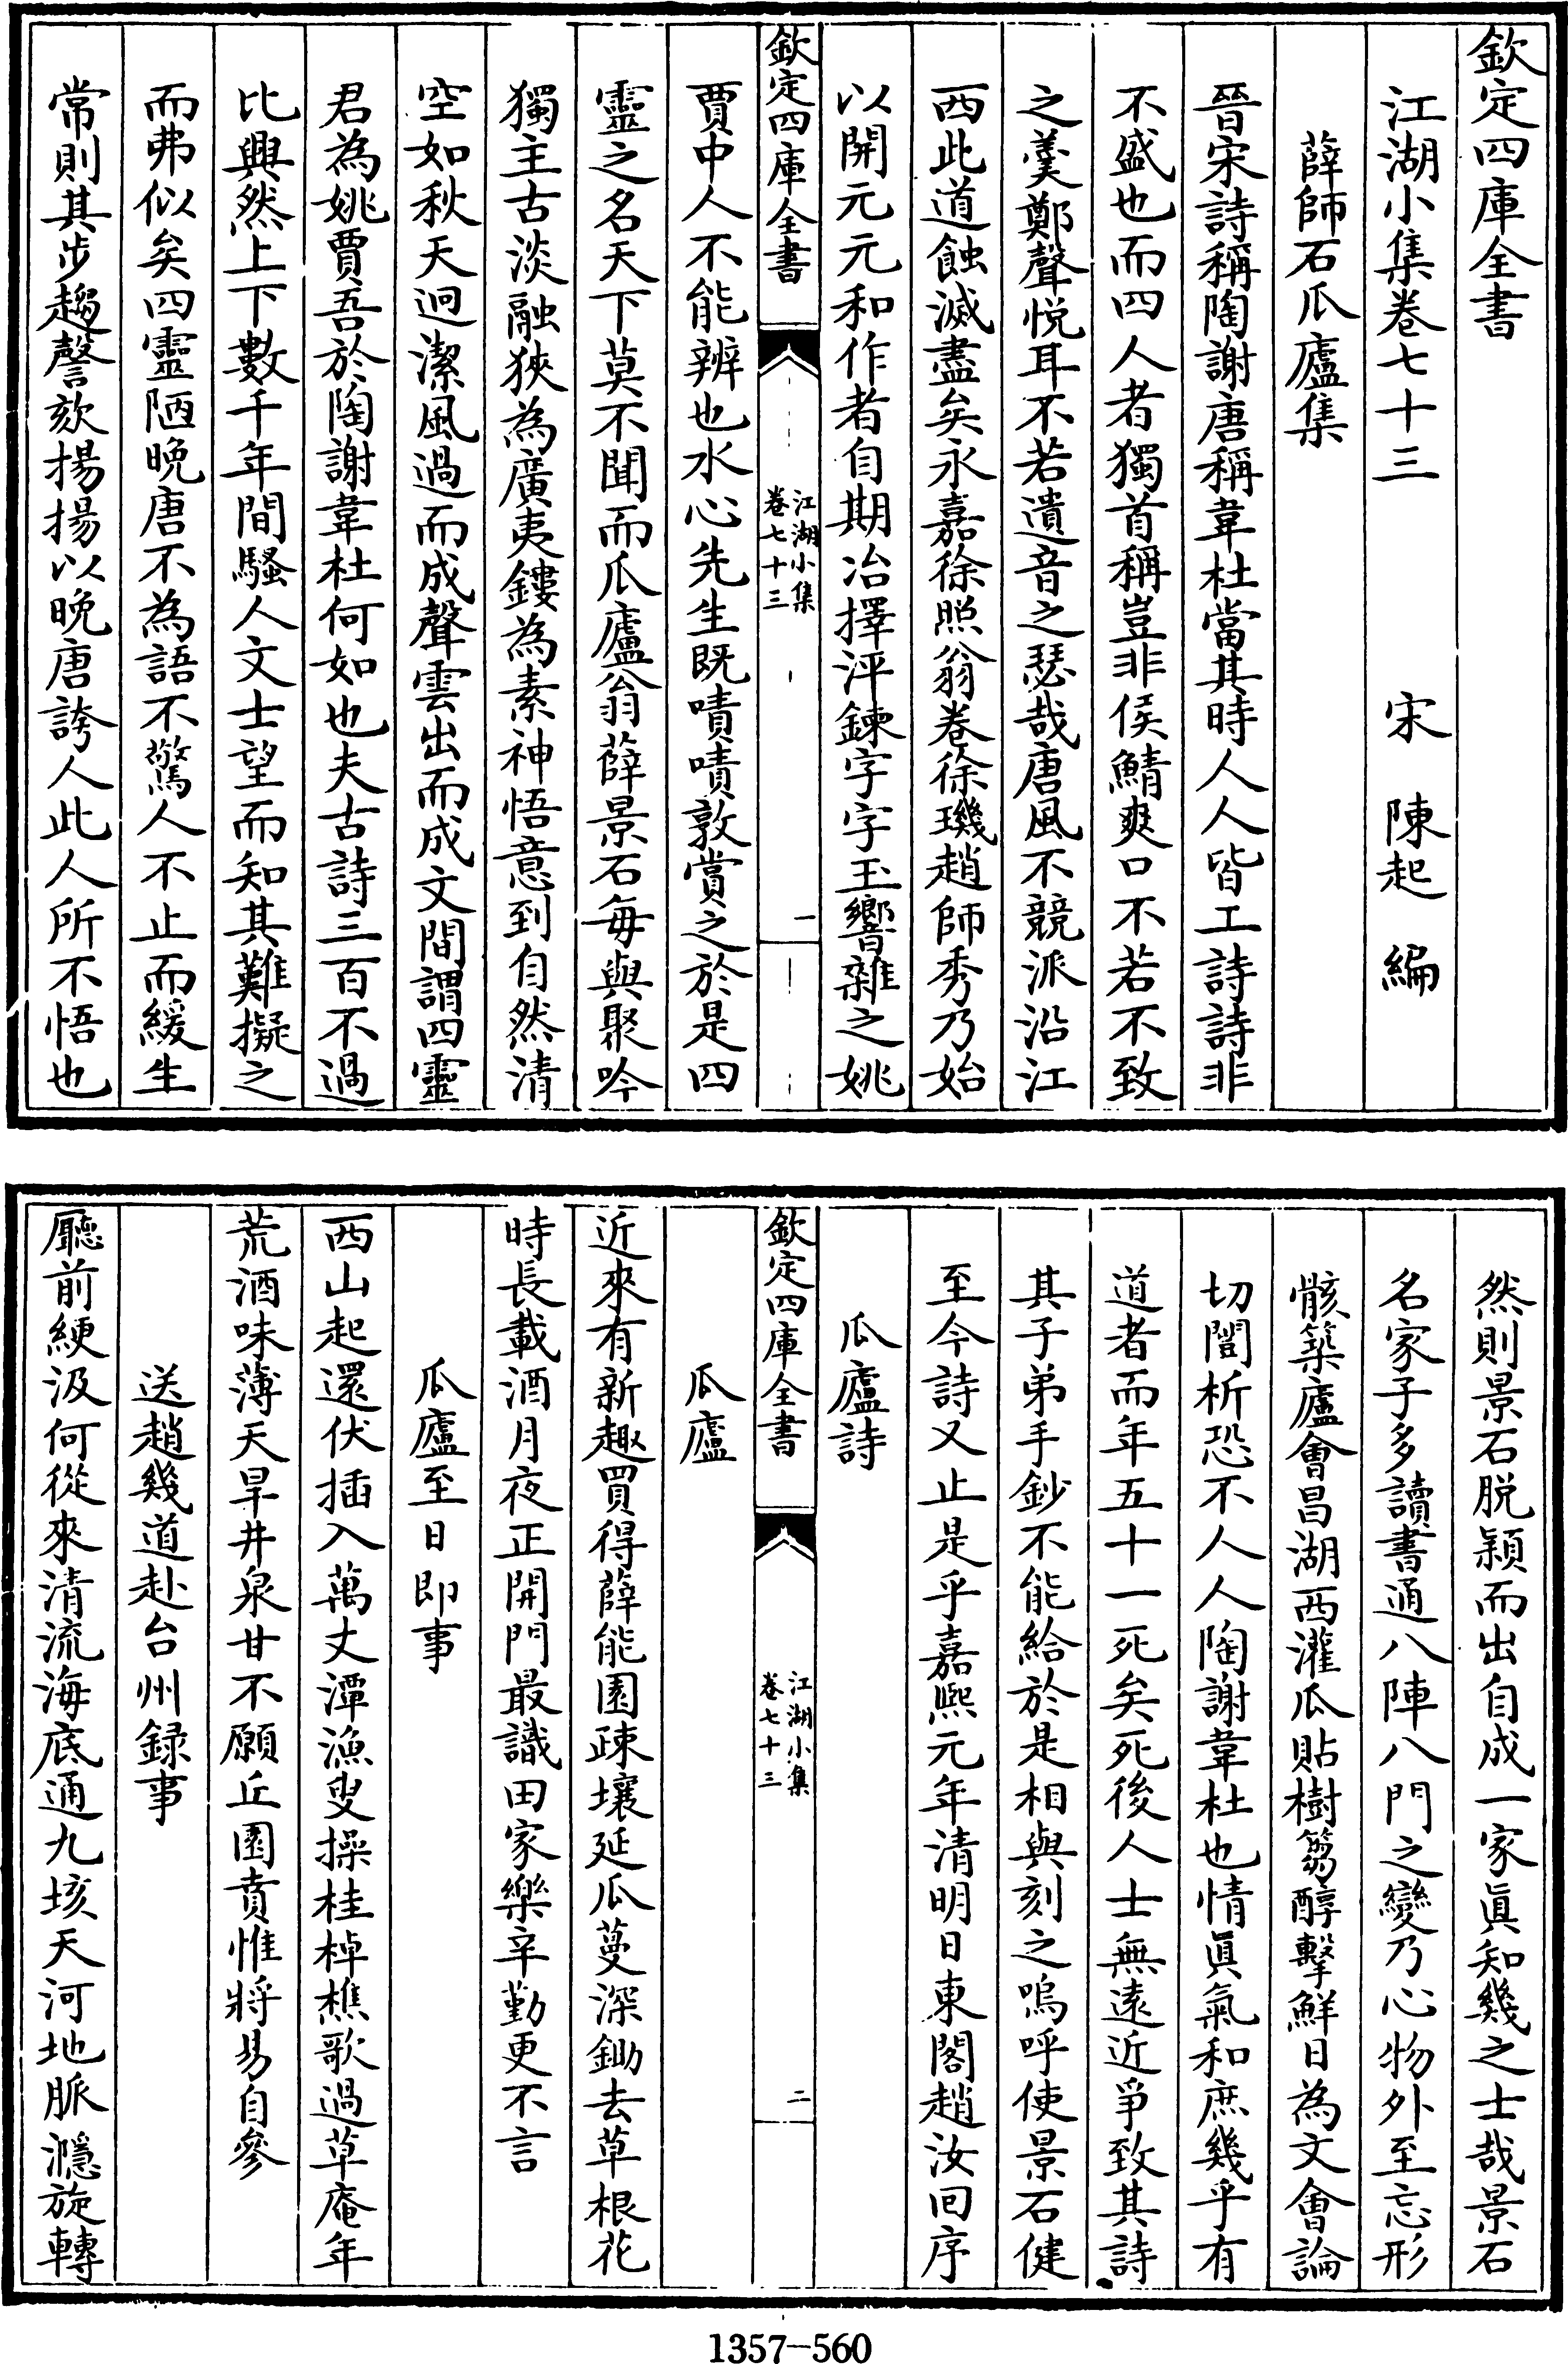 欽定四庫全書
江湖小集卷七十三　宋　陳起　編
薛師石瓜廬集
晉宋詩稱陶謝唐稱韋杜當其時人人皆工詩詩非
不盛也而四人者獨首稱豈非侯鯖爽口不若不致
之羹鄭聲悅耳不若遺音之瑟哉唐風不競派沿江
西此道蝕滅盡矣永嘉徐照翁卷徐璣趙師秀乃始
以開元元和作者自期冶擇泙鍊字字玉響雜之姚
欽定四庫全書
江湖小集
卷七十三
一
賈中人不能辨也水心先生既嘖嘖敦賞之於是四
靈之名天下莫不聞而瓜廬翁薛景石每與聚吟
獨主古淡融狹為廣夷鏤為素神悟意到自然清
空如秋天迥潔風過而成聲雲出而成文間謂四靈
君為姚賈吾於陶謝韋杜何如也夫古詩三百不過
比興然上下數千年間騷人文士望而知其難擬之
而弗似矣四靈陋晚唐不為語不驚人不止而緩生
常則其步趨謦欬揚揚以晚唐誇人此人所不悟也
然則景石脱穎而出自成一家真知幾之士哉景石
名家子多讀書通八陣八門之變乃心物外至忘形
骸築廬會昌湖西灌瓜貼樹蒭醇擊鮮日為文會論
切誾析恐不人人陶謝韋杜也情真氣和庶幾乎有
道者而年五十一死矣死後人士無遠近爭致其詩
其子弟手鈔不能給於是相與刻之嗚呼使景石健
至今詩又止是乎嘉熙元年清明日東閣趙汝回序
瓜廬詩
欽定四庫全書
江湖小集
卷七十三
二
瓜廬
近來有新趣買得薛能園疎壤延瓜蔓深鋤去草根花
時長載酒月夜正開門最識田家樂辛勤更不言
瓜廬至日即事
西山起還伏插入萬丈潭漁叟操桂棹樵歌過草庵年
荒酒味薄天旱井泉甘不願丘園賁惟將易自參
送趙幾道赴台州録事
廳前綆汲何從來清流海底通九垓天河地脈濦旋轉
1357-560